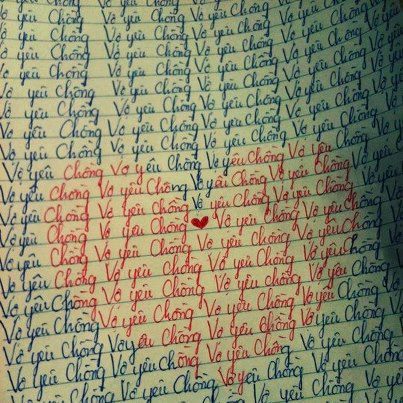 yêu Chồng Vợ yêu Chồng Vợ yêu Chồng Vợ
yêu Chồng Vợ yêu Chồng Vợ yêu Chồng Vợ yêu
yêu Chồng Vợ yêu Chồng Vợ yêu Chồng Vợ yêu
yêu Chồng Vợ yêu Chồng Vợ yêu Chồng Vợ yêu
Vợ yêu Chồng Vợ yêu Chồng Vợ yêu Chồng Vợ yêu
Vợ yêu Chồng Vợ yêu Chồng Vợ yêu Chồng Vợ yêu
Vợ yêu Chồng Vợ yêu Chồng Vợ yêu Chồng Vợ yêu
Vợ yêu Chồng Vợ yêu Chồng Vợ yêu Chồng Vợ yêu
Vợ yêu Chồng Vợ yêu Chồng Vợ yêu Chồng Vợ yêu
Vợ yêu Chồng Vợ yêu Chồng Vợ yêu Chồng Vợ yêu
Vợ yêu Chồng Vợ yêu Chồng Vợ yêu Chồng Vợ yêu Chồng
Vợ yêu Chồng Vợ yêu Chồng ♥ Vợ yêu Chồng Vợ yêu Chồng
Vợ yêu Chồng Vợ yêu Chồng Vợ yêu Chồng Vợ yêu Chồng
Vợ yêu Chồng Vợ yêu Chồng Vợ yêu Chồng Vợ yêu Chồng
Vợ yêu Chồng Vợ yêu Chồng Vợ yêu Chồng Vợ yêu Chồng
Vợ yêu Chồng Vợ yêu Chồng Vợ yêu Chồng Vợ yêu Chồng
Vợ yêu Chồng Vợ yêu Chồng Vợ yêu Chồng Vợ yêu Chồng
Vợ yêu Chồng Vợ yêu Chồng Vợ yêu Chồng Vợ yêu Chồng
Vợ yêu Chồng Vợ yêu Chồng Vợ yêu Chồng